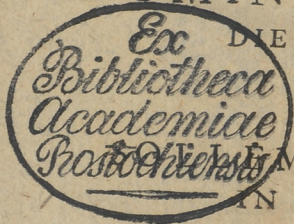 Ex
DIE
Bibliotheca
Academiae
Rostochiensis
IN